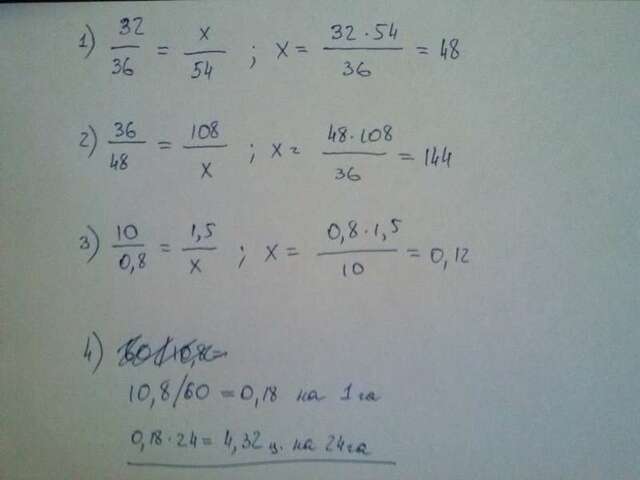 1) 32/36 = x/54 ; x = 32·54/36 = 48
2) 36/48 = 108/x ; x = 48·108/36 = 144
3) 10/0,8 = 1,5/x ; x = 0,8·1,5/10 = 0,12
4)
10,8/60 = 0,18 на 1га
0,18·24 = 4,32 ц. на 24га